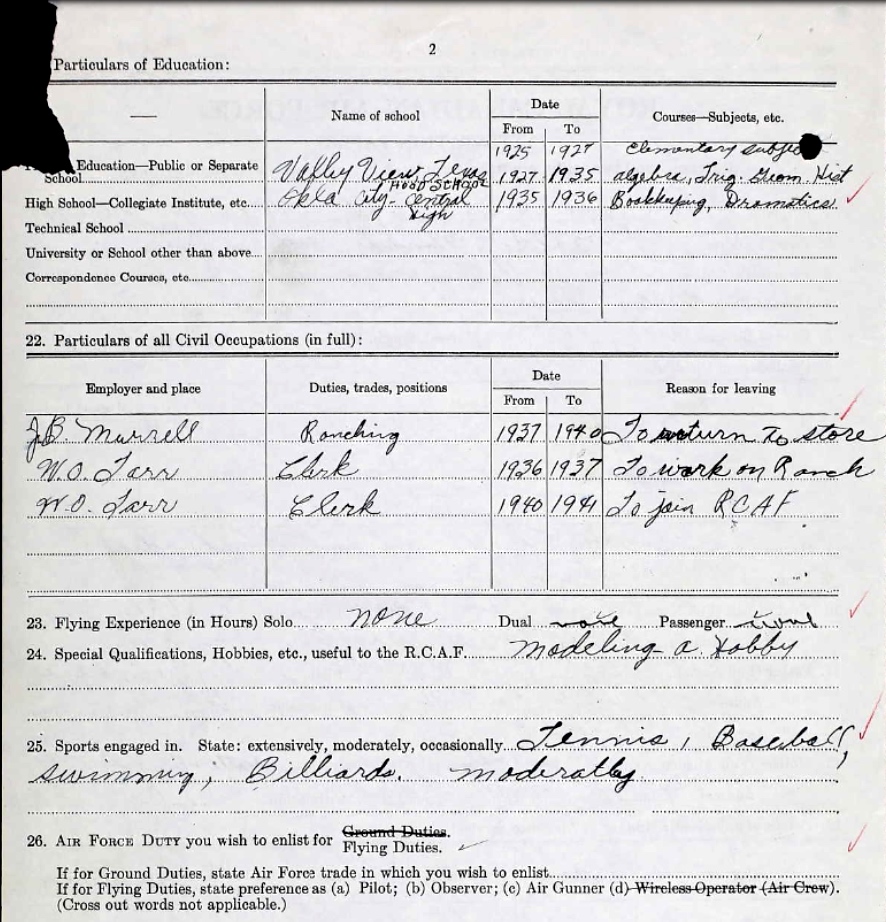 2
Particulars of Education:
Name of school
Date
From To
Courses—Subjects, etc.
1925 1927 Elementary
Education—Public or Separate School Valley View, Texas 1927 1935 algebra, Trig. Geom. Hist
HOOD SCHOOL
High School—Collegiate Institute, etc. Okla City - Central High 1935 1936 Bookkeeping, Dramatics
Technical School
University or School other than above
Correspondence Courses, etc
22. Particulars of all Civil Occupations (in full):
Employer and place
Duties, trades, positions
Date
From To
Reason for leaving
J.B. Murrell Ranching 1937 1940 To return To store
W.O. Tarr Clerk 1936 1937 To work on Ranch
W.O. Tarr Clerk 1940 1941 To join RCAF
23. Flying Experience (in Hours) Solo none Dual none Passenger none
24. Special Qualifications, Hobbies, etc., useful to the R.C.A.F. Modeling a Hobby
25. Sports engaged in. State: extensively, moderately, occasionally Tennis, Baseball,
swimming, Billiards. moderatley
26. AIR FORCE DUTY you wish to enlist for Ground Duties.
Flying Duties.
If for Ground Duties, state Air Force trade in which you wish to enlist
If for Flying Duties, state preference as (a) Pilot; (b) Observer; (c) Air Gunner (d) Wireless Operator (Air Crew).
(Cross out words not applicable.)